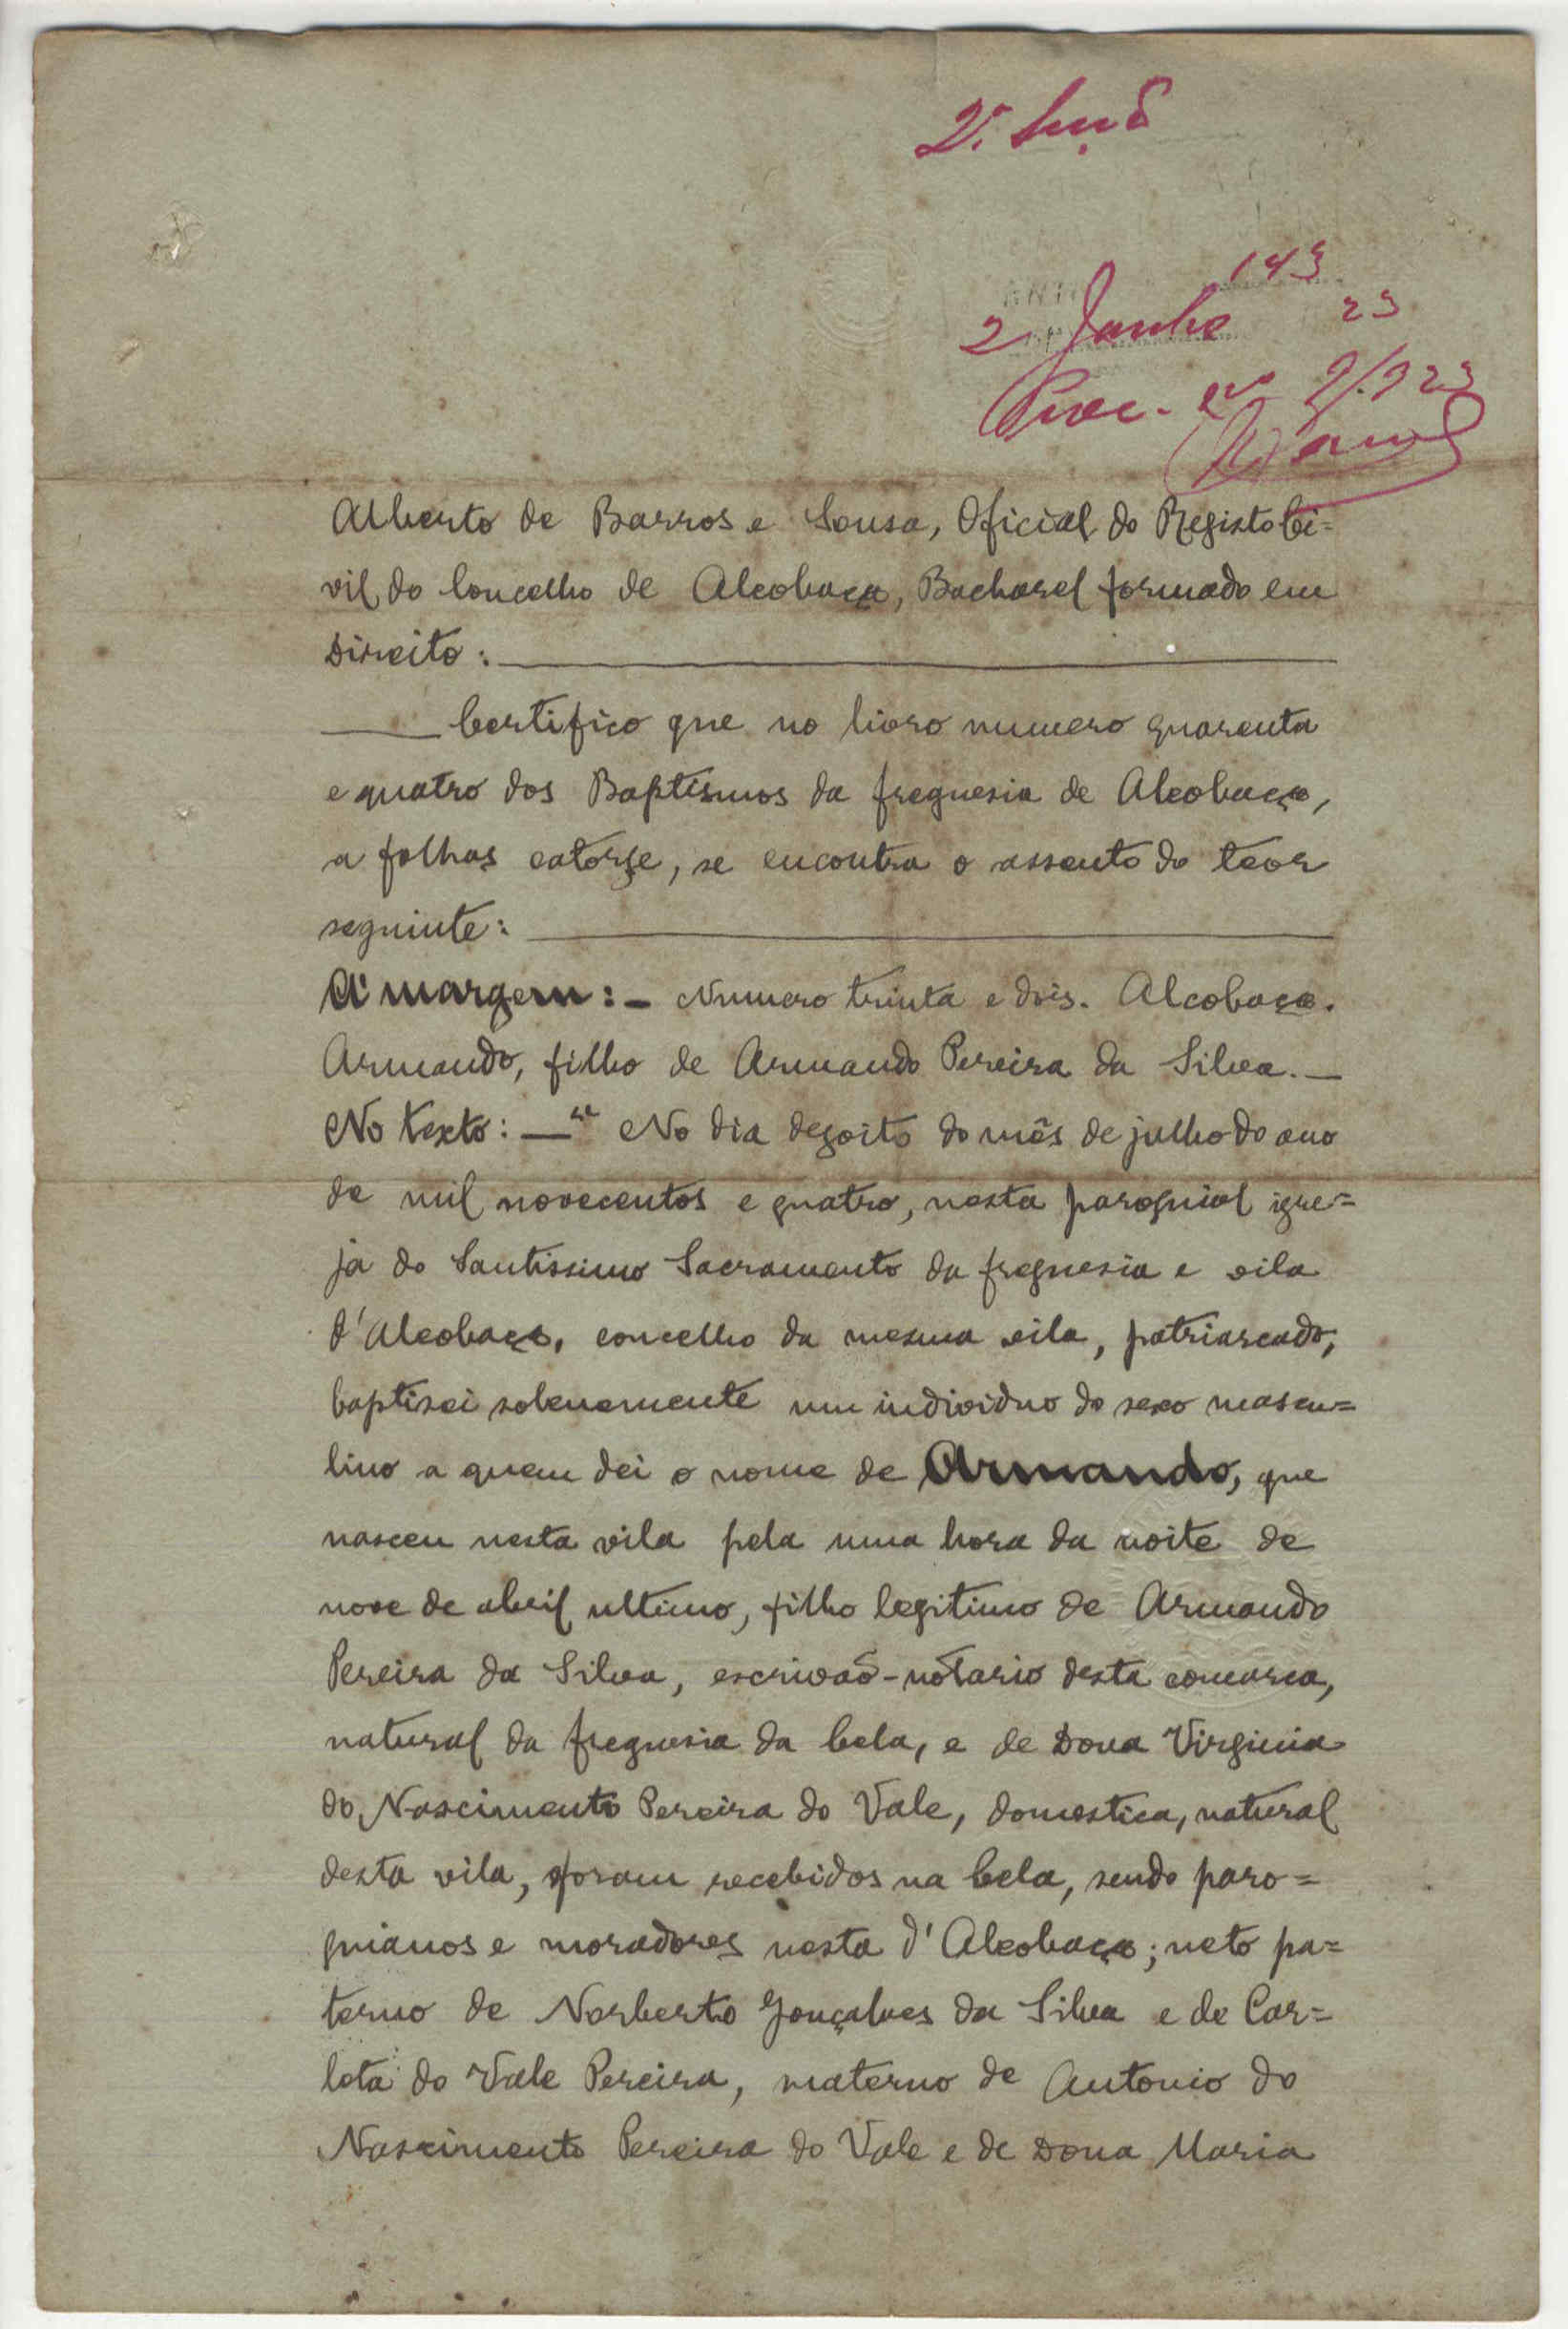 143
2 Junho 23
Proc. 9/923
Alberto de Barros e Sousa, Oficial do Registo Ci=
vil do Concelho de Alcobaça, Bacharel formado em
Direito:
Certifico que no livro numero quarenta
e quatro dos Baptismos da freguesia de Alcobaça,
a folhas catorze, se encontra o assento do teor
seguinte:
A' margem:- Numero trinta e dois. Alcobaça.
Armando, filho de Armando Pereira da Silva.-
No texto:-" No dia dezoito do mês de julho do ano
de mil novecentos e quatro, nesta paroquial igre=
ja do Santissimo Sacramento da freguesia e vila
d'Alcobaça, concelho da mesma vila, patriarcado,
baptisei solenemente um individuo do sexo mascu=
lino a quem dei o nome de Armando, que
nasceu nesta vila pela uma hora da noite de
nove de abril ultimo, filho legitimo de Armando
Pereira da Silva, escrivaõ-notario desta comarca,
natural da freguesia da Cela, e de Dona Virginia
do Nascimento Pereira do Vale, domestica, natural
desta vila, foram recebidos na Cela, sendo paro=
quianos e moradores nesta d'Alcobaça; neto pa=
terno de Norberto Gonçalves da Silva e de Car=
lota do Vale Pereira, materno de Antonio do
Nascimento Pereira do Vale e de Dona Maria